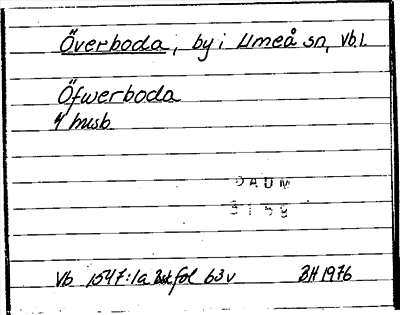 Överboda, by i Umeå sn, Vb.l.
Öfwerboda
4 husb
DAUM
3159
Vb 1547:1a Bst fol 63v BH 1976